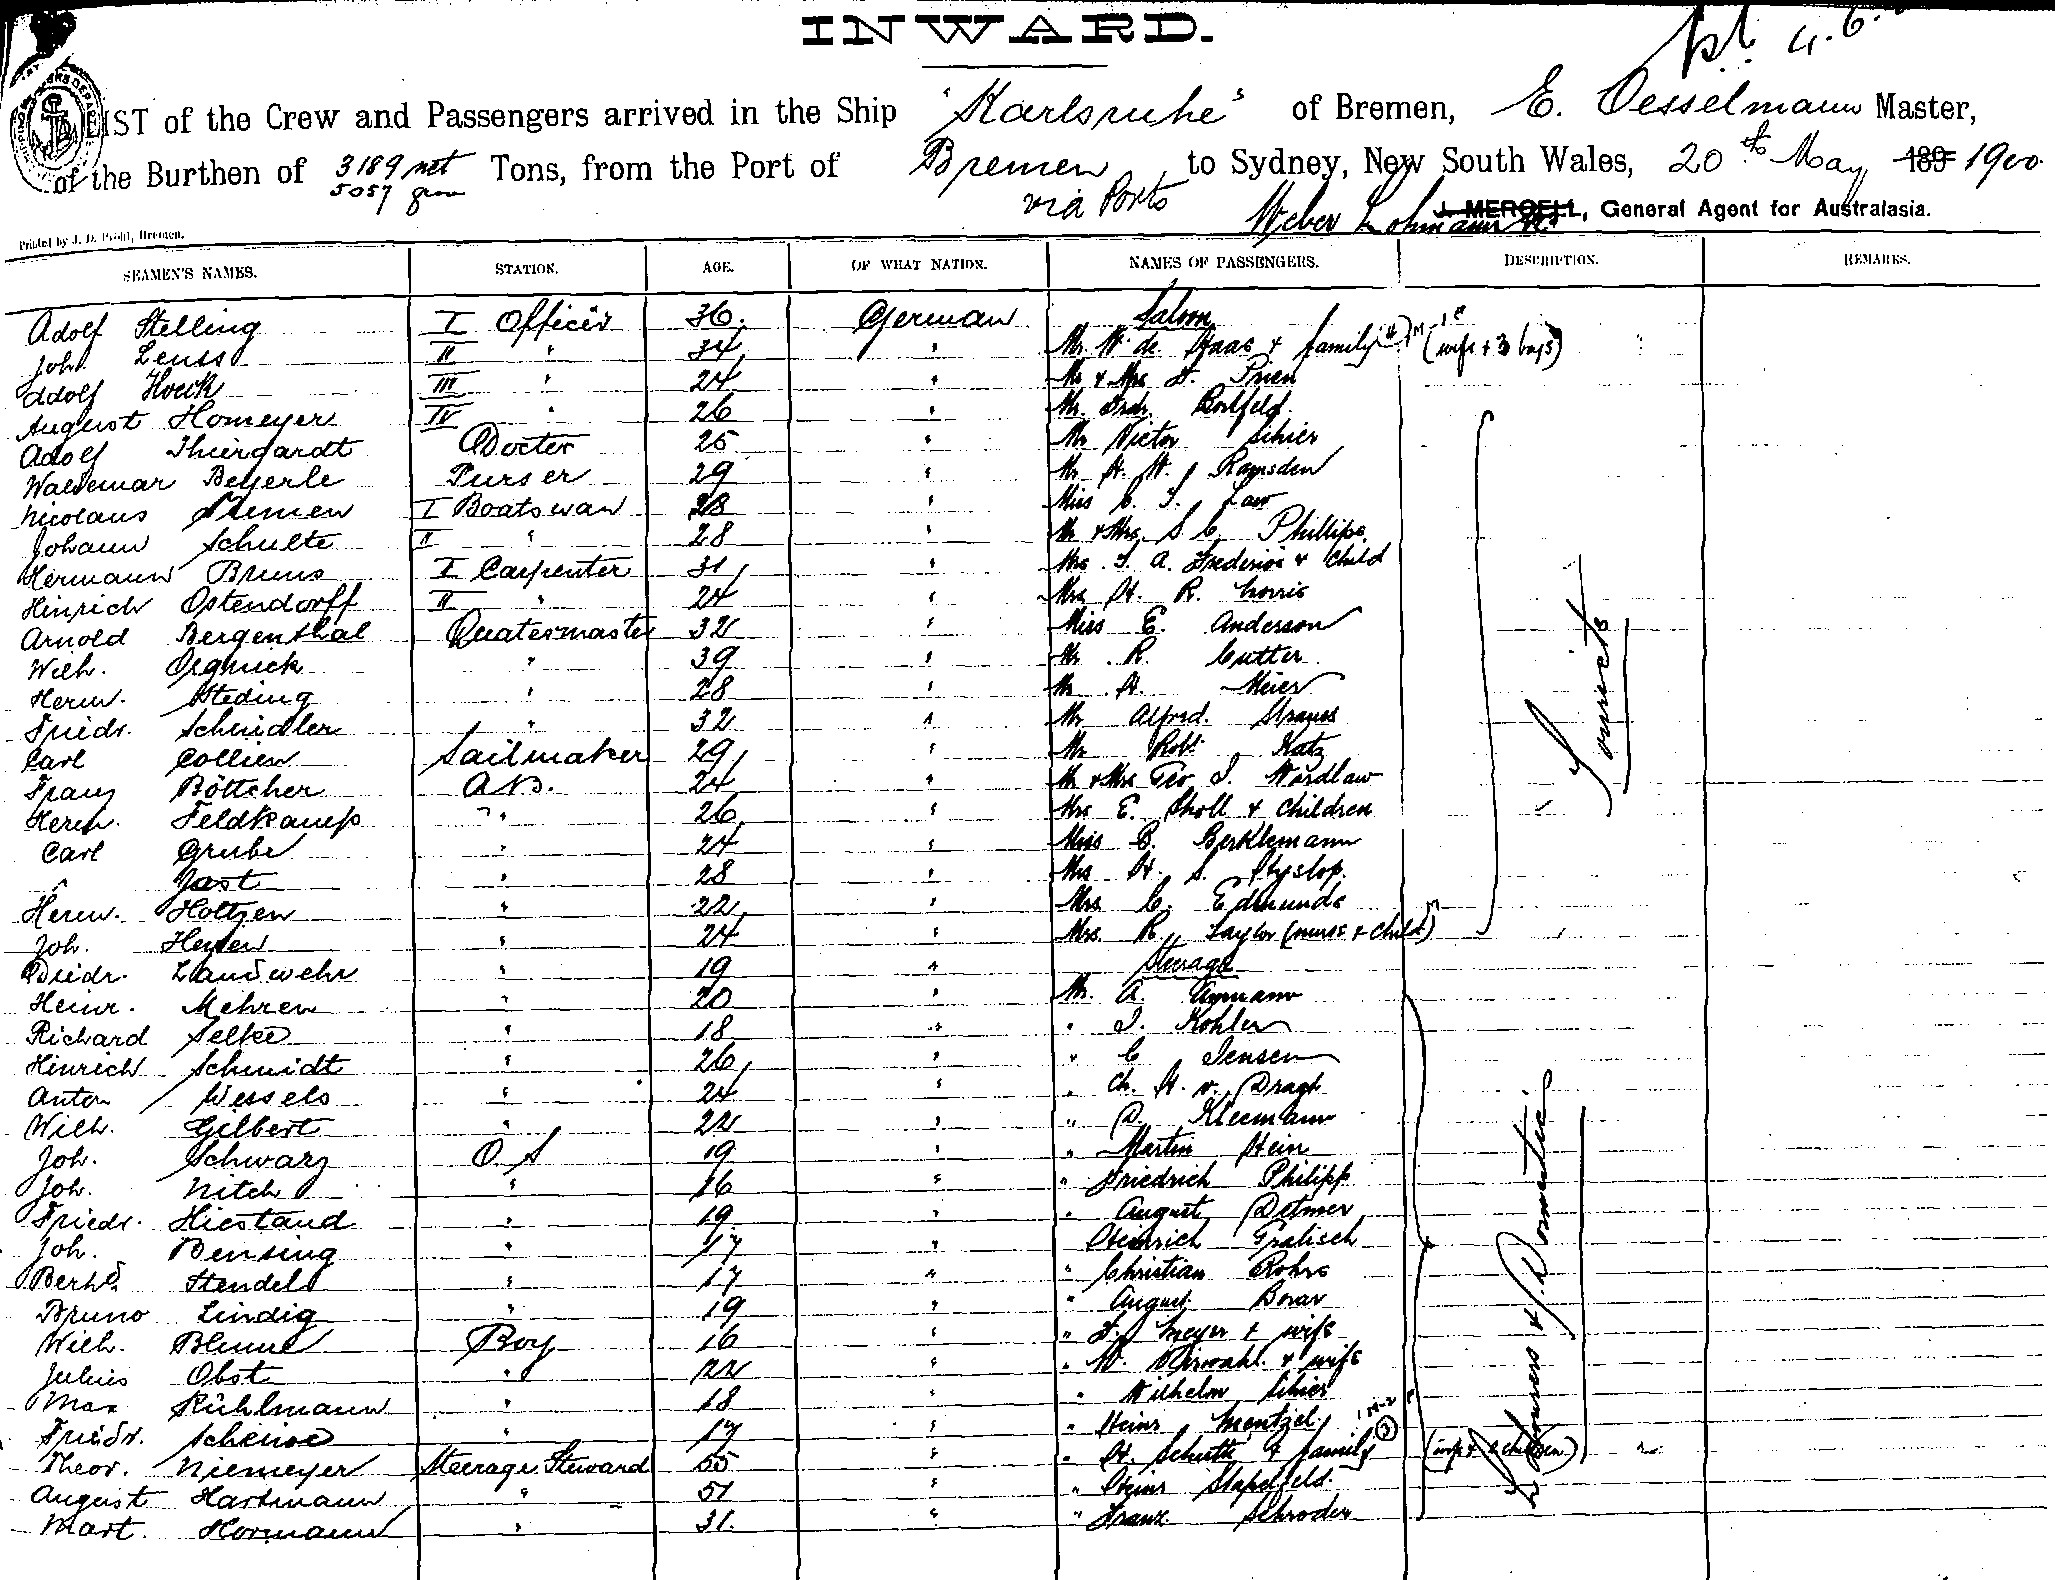 INWARD.
LIST of the Crew and Passengers arrived in the Ship "Karlsruhe" of Bremen, E. Oesselmann Master,
of the Burthen of 3189 net 5057 Tons, from the Port of Bremen via Ports to Sydney, New South Wales, 20th May 189 1900
Weber Lohmann J. MERGELL, General Agent for Australasia.
Printed by J. D. Bremen.
SEAMEN'S NAMES. STATION. AGE. OF WHAT NATION. NAMES OF PASSENGERS. DESCRIPTION. REMARKS.
Adolf Stelling I Officer 36 German Saloon
Joh. Leuss II " 34 " Mr. W. de Haas & family (wife + 3 boys)
Adolf Hoeck III " 24 " Mr & Mrs F. Prien
August Homeyer IV " 26 " Mr. Bortfeld
Adolf Thiergardt Docter 25 " Mr Victor Schier
Waldemar Beyerle Purser 29 " Mr H. W. Ramsden
Nicolaus I Boatswan 28 " Miss C. Law
Johann Schulte II " 28 " Mr & Mrs S. C. Phillips
Hermann Bruns I Carpenter 31 " Mrs A. & Child
Hinrich Ostendorff II " 24 " Mrs H. R. Norris
Arnold Bergenthal Quatermaster 32 " Miss E. Anderson
Wilh. " 39 " Mr R. Cutter
Herm. Steding " 28 " Mr H. Meier
Friedr. Schindler " 32 " Mr Alfred Strauss
Carl Collien Sailmaker 29 " Mr Robt Katz
Franz Böttcher A.B. 24 " Mr & Mrs Geo. Wardlaw
Herm. Feldkamp " 26 " Mrs E. Sholl & children
Carl Grube " 24 " Miss B. Berklemann
" Jast " 28 " Mrs H. S. Hyslop
Herm. Holtzen " 22 " Mrs C. Edmunds
Joh. Heyen " 24 " Mrs. R. Taylor (nurse & child)
Tourists
Diedr. Landwehr " 19 " Steerage
Heinr. Mehren " 20 " Mr. A. Aymann
Richard Selke " 18 " " J. Kohler
Hinrich Schmidt " 26 " " C. Jensen
Anton Wessels " 24 " " Ch. H. v. Dragt
Wilh. Gilbert " 22 " " D. Kleemann
Joh. Schwarz O.S 19 " " Martin Hein
Joh. Nitch " 16 " " Friedrich Philipp
Friedr. Hiestand " 19 " " August Detmer
Joh. Bensing " 17 " Heinrich Gralisch
Berhd. Stendel " 17 " " Christian Rohrs
Bruno Lindig " 19 " " August Borar
Wilh. Blume Boy 16 " " F. Meyer & wife
Julius Obst " 22 " " W. & wife
Max Rühlmann " 18 " " Wilhelm Schier
Friedr. " 17 " " Heinr. Mentzel
Theor. Niemeyer Steerage Steward 55 " " H. Schutte & family (wife & 2 children)
August Hartmann " 51 " " Heinr Stapelfeld
Mart. Hormann " 31 " " Franz Schroder
Labourers & Domestics